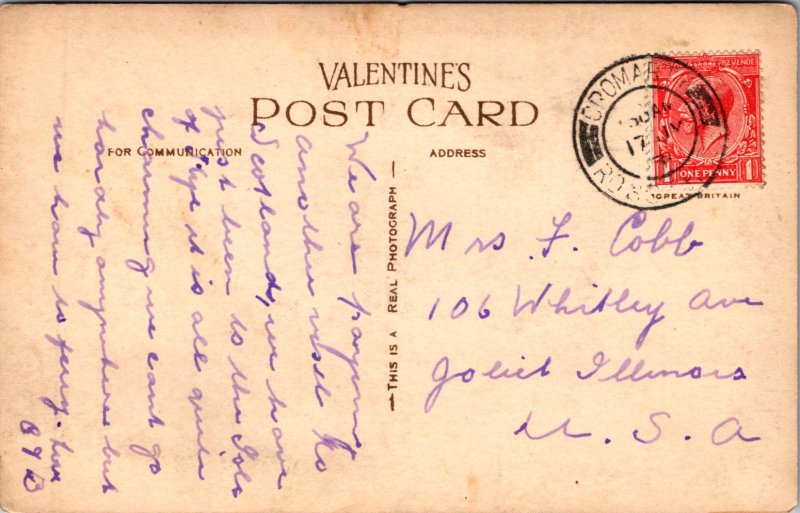 VALENTINE'S
POST CARD
FOR COMMUNICATION
ADDRESS
THIS IS A REAL PHOTOGRAPH
POSTAGE REVENUE
ONE PENNY
1
GREAT BRITAIN
CROMA
ROSS
We are paying
another visit to
Scotland, we have
just been to the Isle
of Skye it is all quite
charming we can't go
hardly anywhere but
we have to ferry. Love
Mrs F. Cobb
106 Whitley Ave
Joliet Illinois
U. S. A